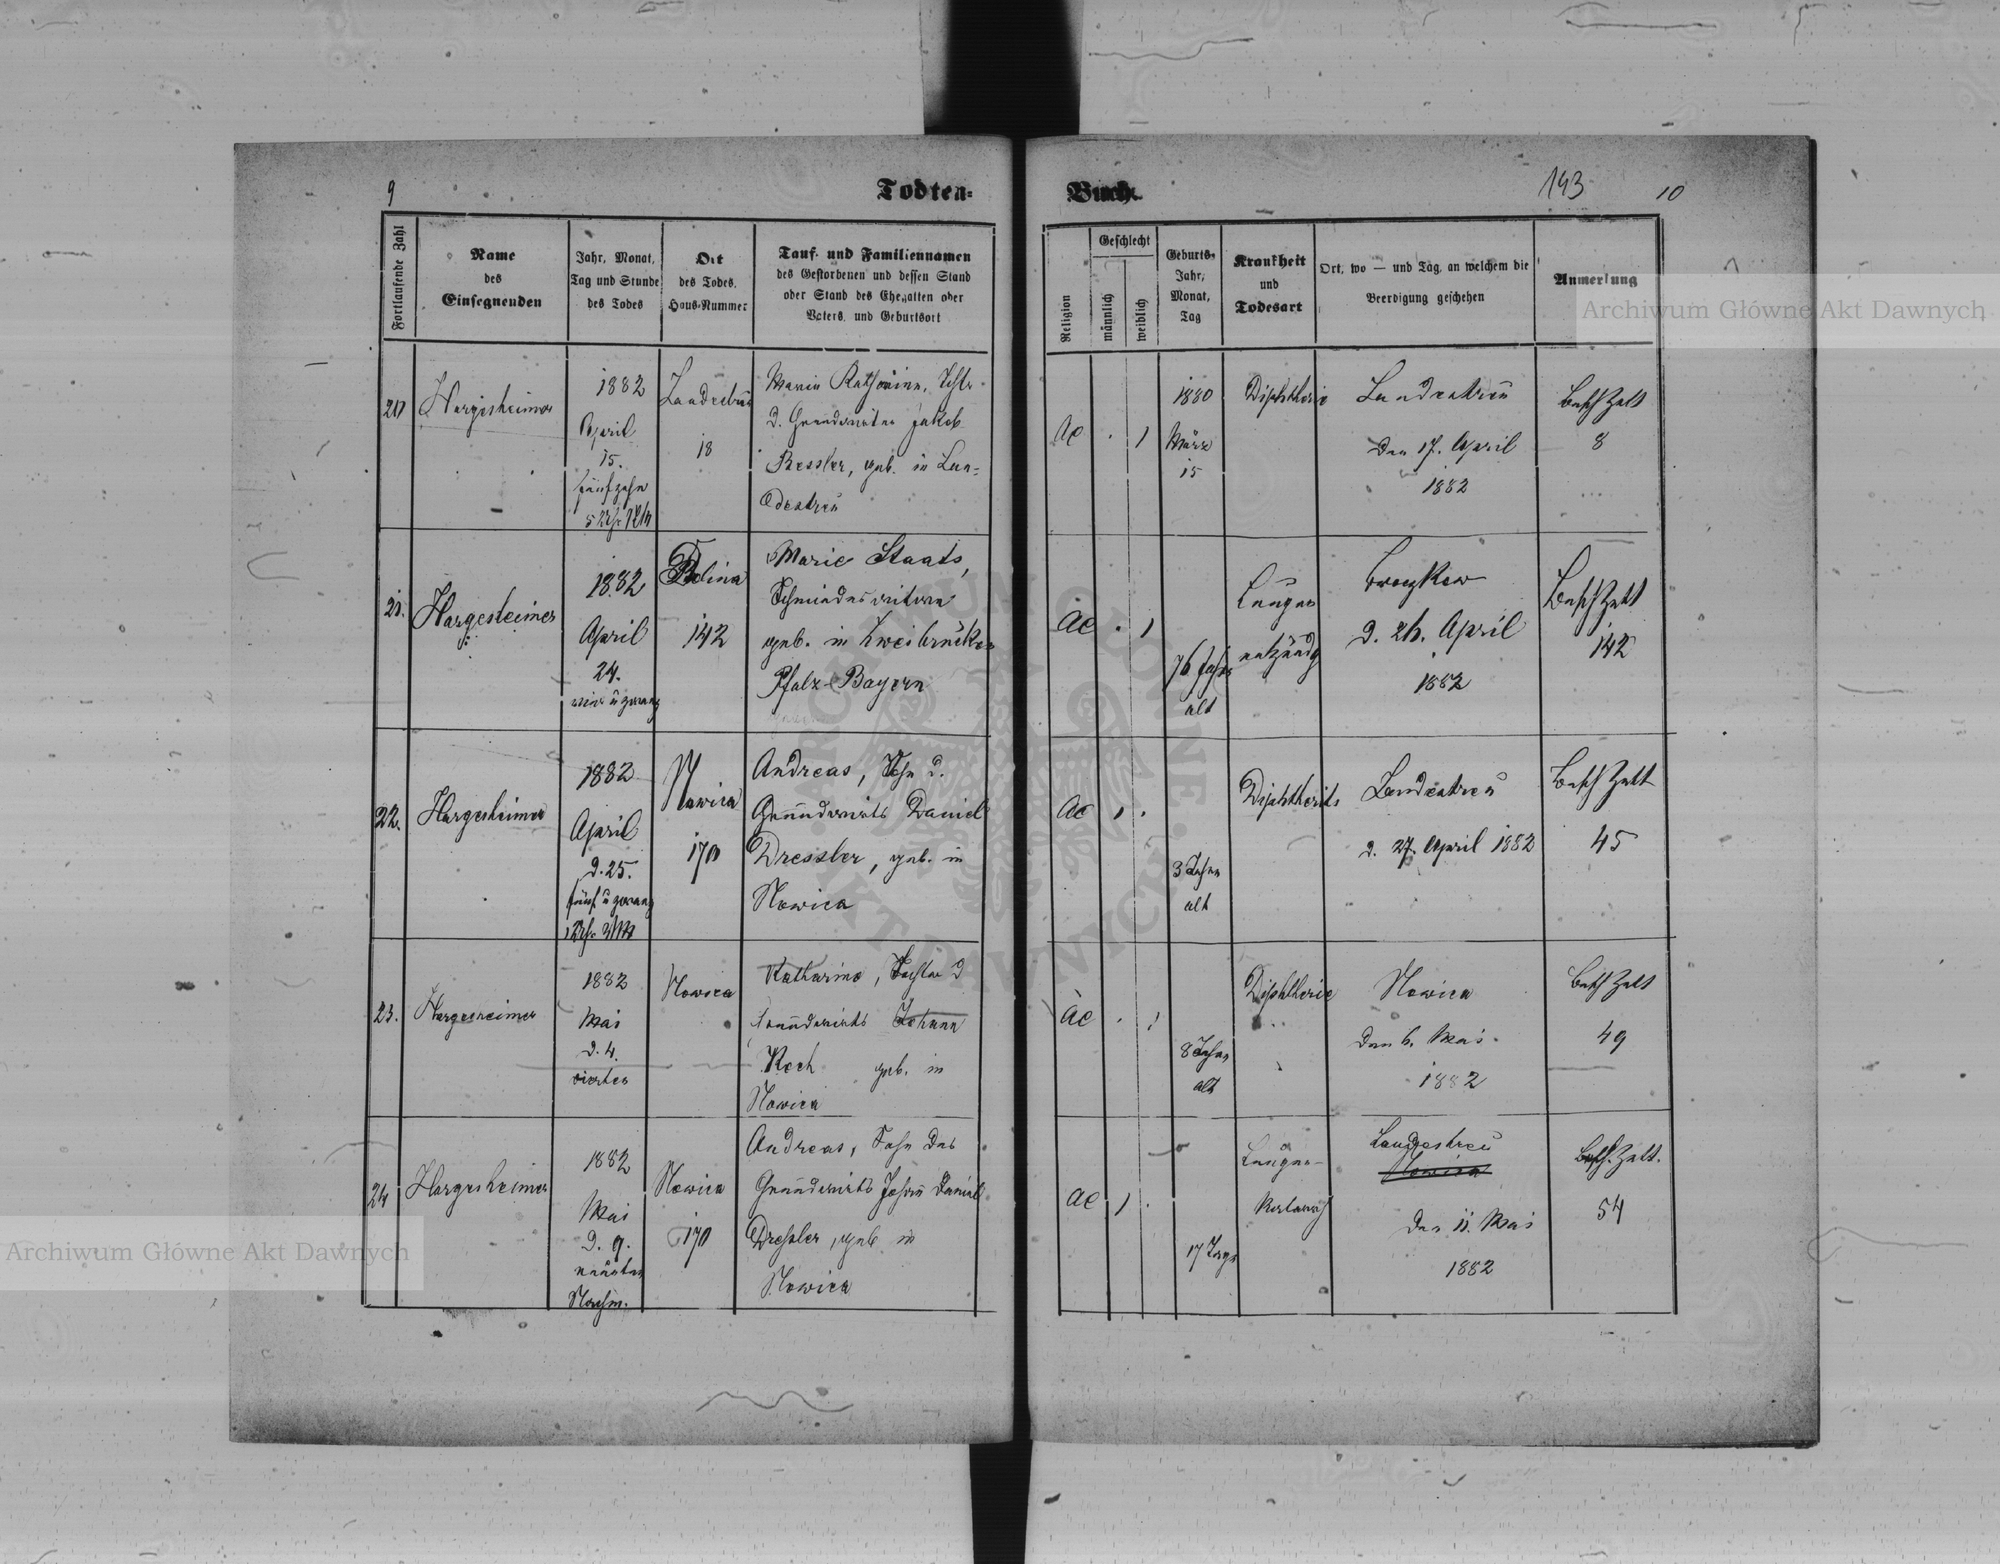 9
Todten-
Buch.
143
10
Fortlaufende Zahl
Name
des
Einsegnenden
Jahr, Monat,
Tag und Stunde
des Todes
Ort
des Todes,
Haus-Nummer
Tauf- und Familiennamen
des Gestorbenen und dessen Stand
oder Stand des Ehegatten oder
Vaters und Geburtsort
Religion
Geschlecht
männlich
weiblich
Geburts-
Jahr,
Monat,
Tag
Krankheit
und
Todesart
Ort, wo — und Tag, an welchem die
Beerdigung geschehen
Anmerkung
20
Hargesheimer
1882
April
15.
fünfzehn
Landestreu
18
Maria Katharina, Tchtr
d. Grundwirten Jakob
Ressler, geb. in Lan-
destreu
AC
1
1880
März
15
Diphtherie
Landestreu
den 17. April
1882
BeschZett
8
21.
Hargesheimer
1882
April
24.
vier u zwanz
Bolina
142
Marie Staats,
Schmiedes witwe
geb. in Zweibrücken
Pfalz-Bayern
AC
1
76 Jahre
alt
Lungen
entzündg
Broczkow
d. 26. April
1882
BeschZett
142
22.
Hargesheimer
1882
April
d. 25.
fünf u zwanz
Nowica
170
Andreas, Sohn d.
Grundwirts Daniel
Dressler, geb. in
Nowica
AC
1
3 Jahre
alt
Diphtherits
Landestreu
d. 27. April 1882
BeschZett
45
23.
Hargesheimer
1882
Mai
d. 4.
vierten
Nowica
Katharina, Tochter d
Grundwirts Johann
Koch geb. in
Nowica
AC
1
8 Jahre
alt
Diphtherie
Nowica
den 6. Mai
1882
BeschZett
49
24
Hargesheimer
1882
Mai
d. 9.
neunten
Nachm.
Nowica
170
Andreas, Sohn des
Grundwirts Johann Daniel
Dressler, geb. in
Nowica
AC
1
17 Tage
Lungen-
Katarrh
Landestreu
Nowica
den 11. Mai
1882
Besch. Zett.
54
Archiwum Główne Akt Dawnych
Archiwum Główne Akt Dawnych
ARCHIWUM GŁÓWNE
AKT DAWNYCH